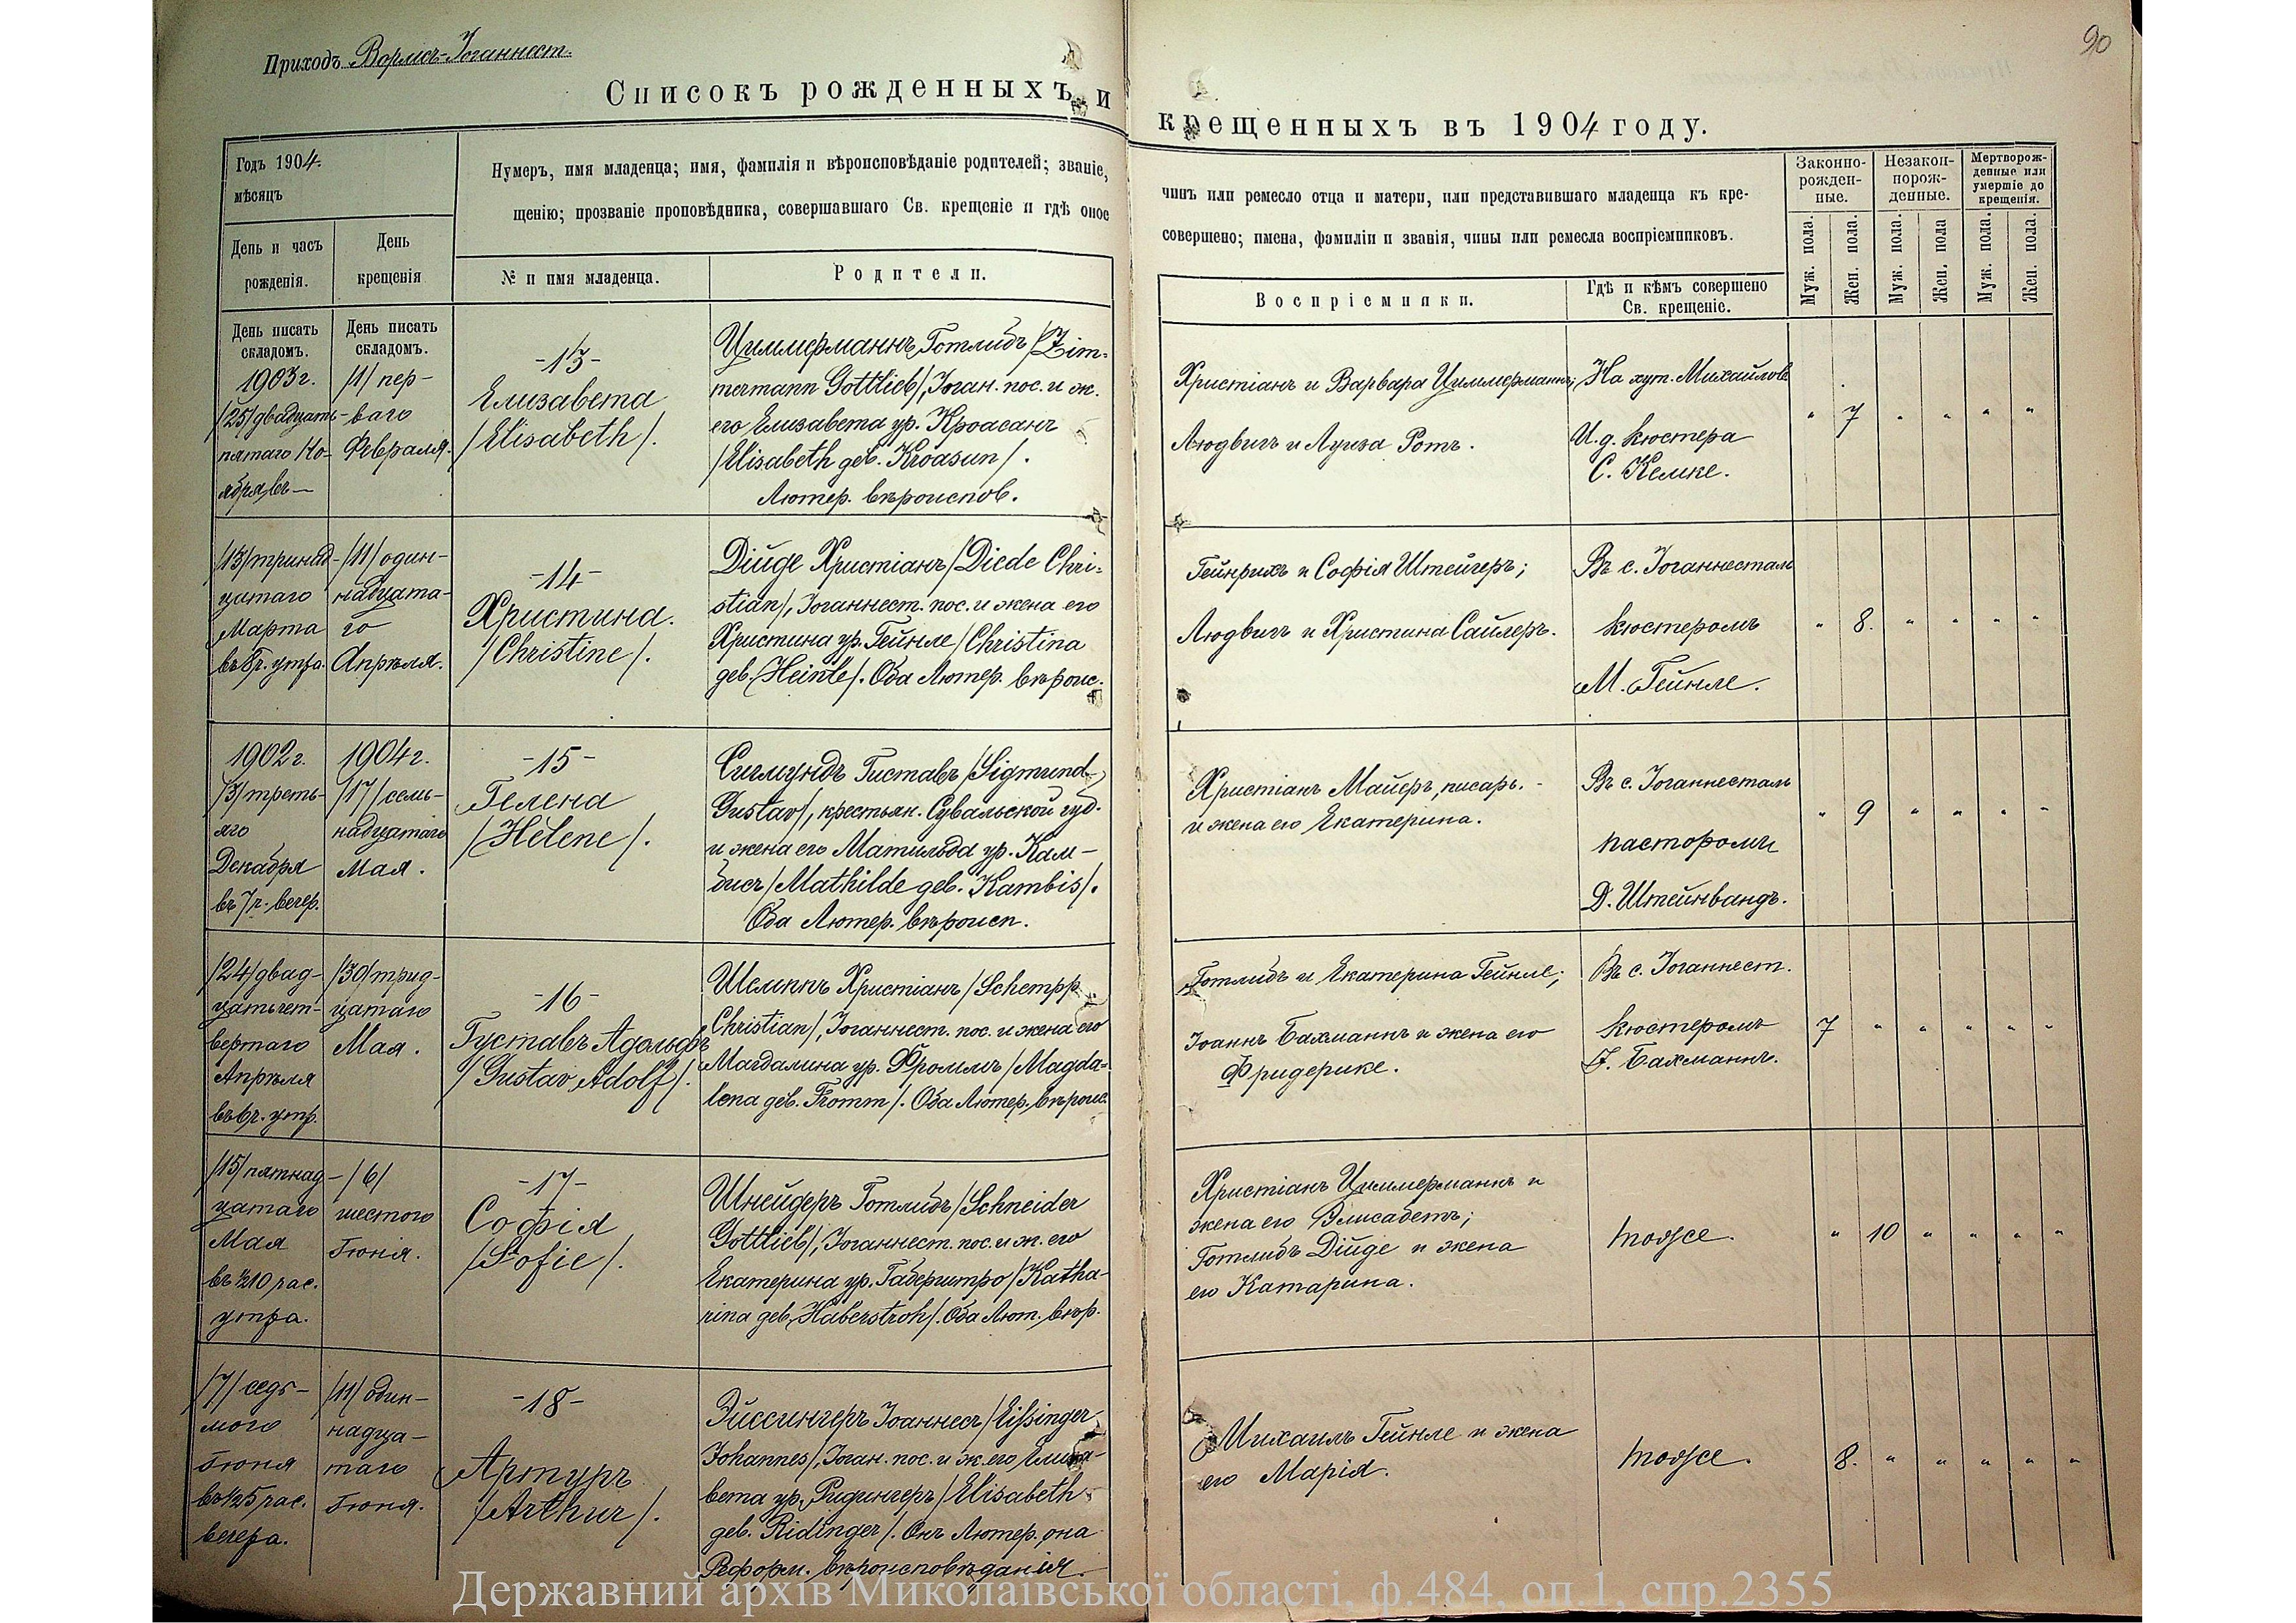 90
Приходъ Вормсъ-Іоганнест.
Списокъ рожденныхъ и крещенныхъ въ 1904 году.
Годъ 1904.
мѣсяцъ
Нумеръ, имя младенца; имя, фамилія и вѣроисповѣданіе родителей; званіе,
чинъ или ремесло отца и матери, или представившаго младенца къ кре-
щенію; прозваніе проповѣдника, совершавшаго Св. крещеніе и гдѣ оное
совершено; имена, фамиліи и званія, чины или ремесла воспріемниковъ.
День и часъ
рожденія.
День
крещенія
№ и имя младенца.
Родители.
Воспріемники.
Гдѣ и кѣмъ совершено
Св. крещеніе.
Законно-
рожден-
ные.
Незакон-
порож-
денные.
Мертворож-
денные или
умершіе до
крещенія.
Муж. пола.
Жен. пола.
Муж. пола.
Жен. пола
Муж. пола.
Жен. пола.
День писать
складомъ.
День писать
складомъ.
1903г.
/25/двадцать-
пятаго Но-
ября, въ —
/1/ пер-
ваго
Февраля.
-13-
Елизавета
/Elisabeth/.
Циммерманнъ Готлибъ /Zim-
mermann Gottlieb/, Іоган. пос. и ж.
его Елизавета ур. Кроасанъ
/Elisabeth geb. Kroasun/.
Лютер. вѣроиспов.
Христіанъ и Варвара Циммерманнъ;
Людвигъ и Луиза Ротъ.
На хут. Михайлов.
И. д. кюстера
С. Кемке.
" 7 " " " "
/13/тринад-
цатаго
Марта
въ 8 ч. утра.
/11/ один-
надцата-
го
Апрѣля.
-14-
Христина.
/Christine/.
Дійде Христіанъ /Diede Chri-
stian/, Іоганнест. пос. и жена его
Христина ур. Гейнле /Christina
geb. Heinle/. Оба Лютер. вѣроис.
Гейнрихъ и Софія Штейгеръ;
Людвигъ и Христина Сайлеръ.
Въ с. Іоганнесталь
кюстеромъ
М. Гейнле.
" 8. " " " "
1902г.
/3/треть-
яго
Декабря
въ 7 ч. вечер.
1904г.
/17/ семь-
надцатаго
Мая.
-15-
Гелена
/Helene/.
Сигмундъ Густавъ /Sigmund
Gustav/, крестьян. Сувальской губ.
и жена его Матильда ур. Кам-
бисъ /Mathilde geb. Kambis/.
Оба Лютер. вѣроисп.
Христіанъ Майеръ, писарь.
и жена его Екатерина.
Въ с. Іоганнесталь
пасторомъ
Д. Штейнвандъ.
" 9 " " " "
/24/двад-
цатьчет-
вертаго
Апрѣля
въ 6 ч. утр.
/30/трид-
цатаго
Мая.
-16-
Густавъ Адольфъ
/Gustav Adolf/.
Шемппъ Христіанъ /Schempp
Christian/, Іоганнест. пос. и жена его
Магдалина ур. Фроммъ /Magda-
lena geb. Fromm/. Оба Лютер. вѣроис.
Готлибъ и Екатерина Гейнле;
Іоаннъ Бахманнъ и жена его
Фридерике.
Въ с. Іоганнест.
кюстеромъ
Бахманнъ.
7 " " " " "
/15/пятнад-
цатаго
Мая
въ ½10 час.
утра.
/6/
шестого
Іюня.
-17-
Софія
/Sofie/.
Шнейдеръ Готлибъ /Schneider
Gottlieb/, Іоганнест. пос. и ж. его
Екатерина ур. Габерштро /Katha-
rina geb. Haberstroh/. Оба Лют. вѣр.
Христіанъ Циммерманнъ и
жена его Элисабетъ;
Готлибъ Дійде и жена
его Катарина.
тоже.
" 10 " " " "
/7/ седь-
мого
Іюня
въ ½5 час.
вечера.
/11/ один-
надца-
таго
Іюня.
-18-
Артуръ
/Arthur/.
Эйссингеръ Іоаннесъ /Eißinger
Johannes/, Іоган. пос. и ж. его Елиза-
вета ур. Ридингеръ /Elisabeth
geb. Ridinger/. Онъ Лютер., она
Реформ. вѣроисповѣданія.
Михаилъ Гейнле и жена
его Марія.
тоже.
8. " " " " "
Державний архів Миколаївської області, ф.484, оп.1, спр.2355